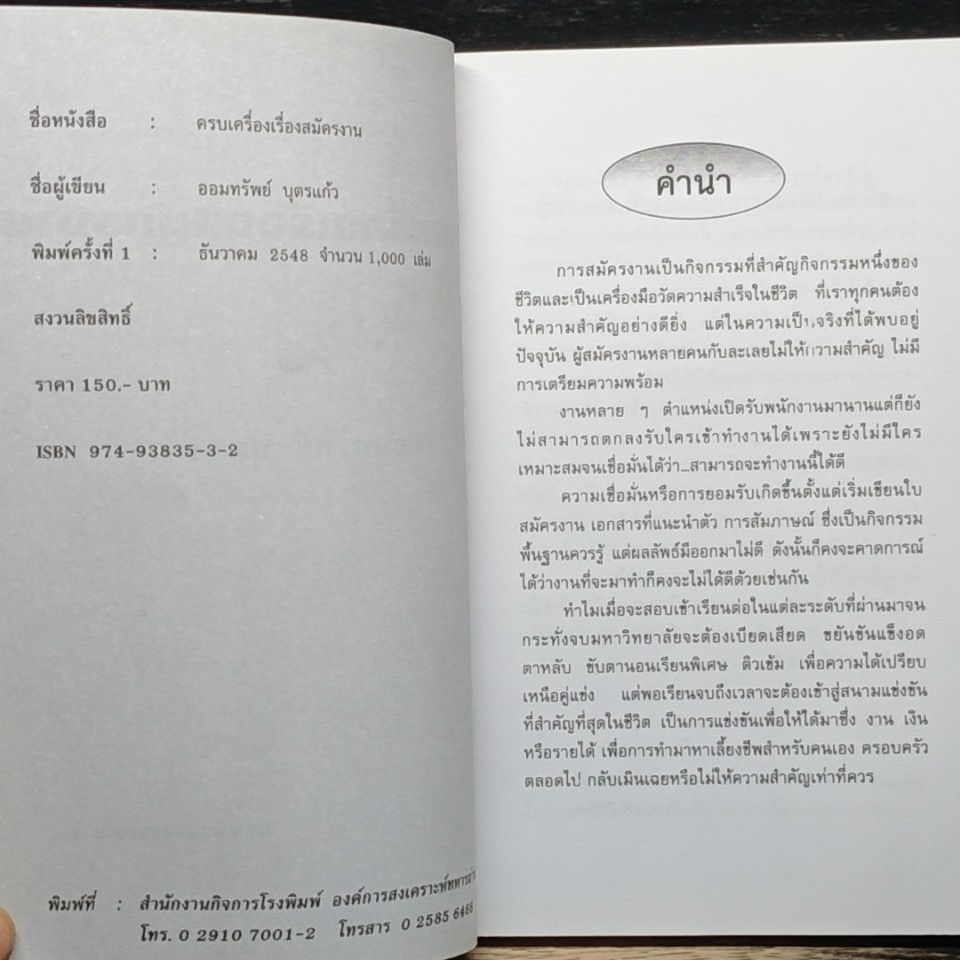 ชื่อหนังสือ : ครบเครื่องเรื่องสมัครงาน
ชื่อผู้เขียน : ออมทรัพย์ บุตรแก้ว
พิมพ์ครั้งที่ 1 : ธันวาคม 2548 จำนวน 1,000 เล่ม
สงวนลิขสิทธิ์
ราคา 150.- บาท
ISBN 974-93835-3-2
พิมพ์ที่ : สำนักงานกิจการโรงพิมพ์ องค์การสงเคราะห์ทหารผ่า
โทร. 0 2910 7001-2 โทรสาร 0 2585 6466
คำนำ
การสมัครงานเป็นกิจกรรมที่สำคัญกิจกรรมหนึ่งของ
ชีวิตและเป็นเครื่องมือวัดความสำเร็จในชีวิต ที่เราทุกคนต้อง
ให้ความสำคัญอย่างดียิ่ง แต่ในความเป็นจริงที่ได้พบอยู่
ปัจจุบัน ผู้สมัครงานหลายคนกับละเลยไม่ให้ความสำคัญ ไม่มี
การเตรียมความพร้อม
งานหลาย ๆ ตำแหน่งเปิดรับพนักงานมานานแต่ก็ยัง
ไม่สามารถตกลงรับใครเข้าทำงานได้เพราะยังไม่มีใคร
เหมาะสมจนเชื่อมั่นได้ว่า...สามารถจะทำงานนี้ได้ดี
ความเชื่อมั่นหรือการยอมรับเกิดขึ้นตั้งแต่เริ่มเขียนใบ
สมัครงาน เอกสารที่แนะนำตัว การสัมภาษณ์ ซึ่งเป็นกิจกรรม
พื้นฐานควรรู้ แต่ผลลัพธ์มีออกมาไม่ดี ดังนั้นก็คงจะคาดการณ์
ได้ว่างานที่จะมาทำก็คงจะไม่ได้ดีด้วยเช่นกัน
ทำไมเมื่อจะสอบเข้าเรียนต่อในแต่ละระดับที่ผ่านมาจน
กระทั่งจบมหาวิทยาลัยจะต้องเบียดเสียด ขยันขันแข็งอด
ตาหลับ ขับตานอนเรียนพิเศษ ติวเข้ม เพื่อความได้เปรียบ
เหนือคู่แข่ง แต่พอเรียนจบถึงเวลาจะต้องเข้าสู่สนามแข่งขัน
ที่สำคัญที่สุดในชีวิต เป็นการแข่งขันเพื่อให้ได้มาซึ่ง งาน เงิน
หรือรายได้ เพื่อการทำมาหาเลี้ยงชีพสำหรับคนเอง ครอบครัว
ตลอดไป กลับเมินเฉยหรือไม่ให้ความสำคัญเท่าที่ควร